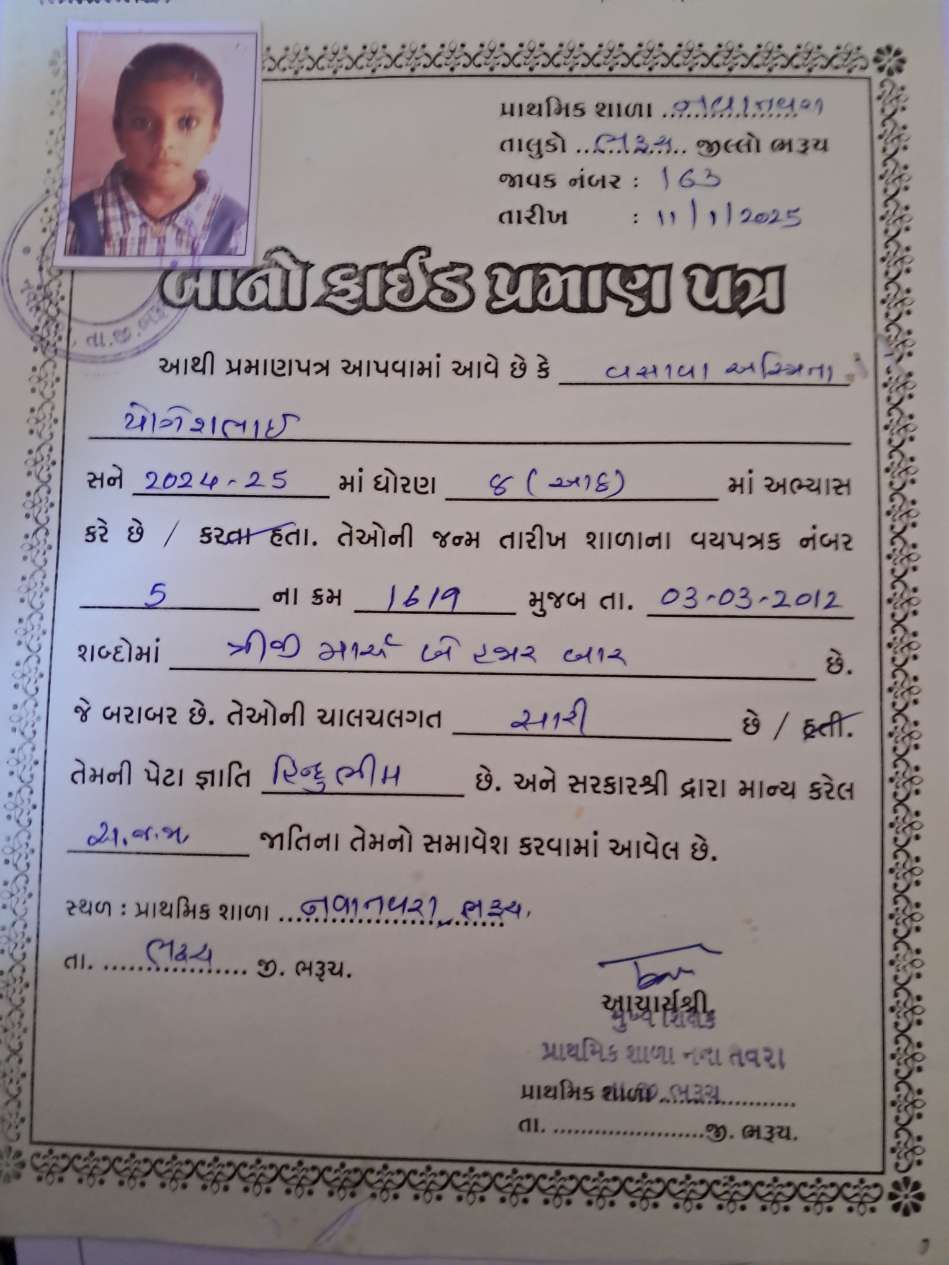 પ્રાથમિક શાળા નવાતવરા
તાલુકો ભરૂચ જીલ્લો ભરૂચ
જાવક નંબર : 163
તારીખ : 11/1/2025
બોનોફાઈડ પ્રમાણ પત્ર
તા.જી.ભરૂચ
આથી પ્રમાણપત્ર આપવામાં આવે છે કે વસાવા અસ્મિતા
યોગેશભાઈ
સને 2024-25 માં ધોરણ ૪ (આઠ) માં અભ્યાસ
કરે છે / કરતા હતા. તેઓની જન્મ તારીખ શાળાના વયપત્રક નંબર
5 ના ક્રમ 1619 મુજબ તા. 03-03-2012
શબ્દોમાં ત્રીજી માર્ચ બે હજાર બાર છે.
જે બરાબર છે. તેઓની ચાલચલગત સારી છે / હતી.
તેમની પેટા જ્ઞાતિ હિન્દુ ભીલ છે. અને સરકારશ્રી દ્વારા માન્ય કરેલ
અ.જ.જા જાતિના તેમનો સમાવેશ કરવામાં આવેલ છે.
સ્થળ : પ્રાથમિક શાળા નવાતવરા, ભરૂચ.
તા. ભરૂચ જી. ભરૂચ.
આચાર્યશ્રી,
મુખ્ય શિક્ષક
પ્રાથમિક શાળા નવા તવરા
પ્રાથમિક શાળા તા.જી. ભરૂચ
તા. જી. ભરૂચ.